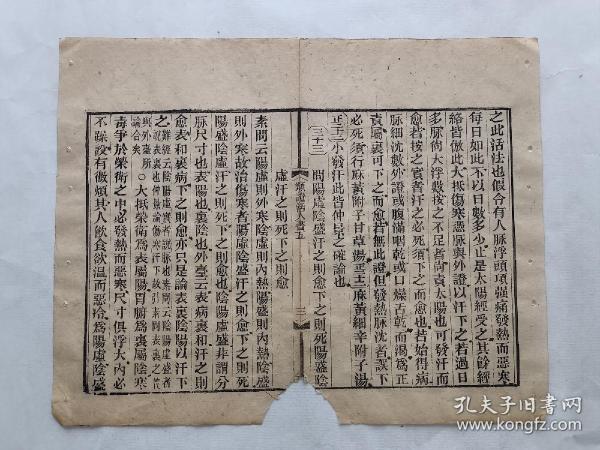 之此活法也假令有人脉浮頭項强痛發熱而惡寒
每日如此不以日數多少止是太陽經受之其餘經
絡皆倣此大抵傷寒憑脉與外證以汗下之若過日
多脉尚大浮數按之不足者尚責太陽也可發汗而
愈若按之實者汗之必死須下之而愈也若始得病
脉細沈數外證或腹滿咽乾或口燥舌乾而渴爲正
責屬裏可下之而愈若無此證但發熱脉沈者誤下
必死須行麻黄附子甘草湯麻黄細辛附子湯
小發汗此皆仲景之確論也
三十三 問陽虛陰盛汗之則愈下之則死陽盛陰
類證活人書五 三
虛汗之則死下之則愈
素問云陽虛則外寒陰虛則內熱陽盛則內熱陰盛
則外寒故治傷寒者陽虛陰盛汗之則愈下之則死
陽盛陰虛汗之則死下之則愈也陰陽虛盛非謂分
脉尺寸也表陽也裏陰也外臺云表病裏和汗之則
愈表和裏病下之則愈亦只是論表裏陰陽以汗下
之
與外臺所論合矣 ○大抵榮衛爲表屬陽胃腑爲裏屬陰寒
毒爭於榮衛之中必發熱而惡寒尺寸俱浮大內必
不躁設有微煩其人飲食欲溫而惡冷爲陽虛陰盛
孔夫子旧书网
www.kongfz.com